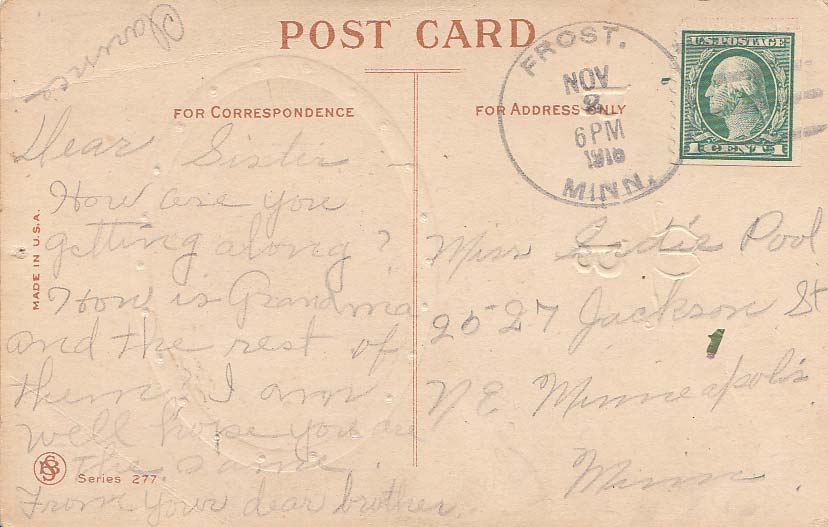 Clarence
POST CARD
FOR CORRESPONDENCE
FOR ADDRESS ONLY
FROST.
NOV
6 PM
MINN.
U.S. POSTAGE
1 CENT 1
Dear Sister -
How are you
getting along?
How is Grandma
and the rest of
them? I am
well hope you are
the same.
From your dear brother.
Miss Sadie Pool
2527 Jackson St
N.E. Minneapolis
Minn.
1
MADE IN U.S.A.
Series 277.